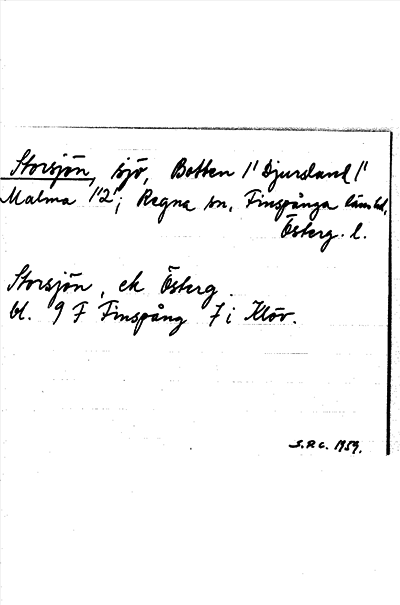 Storsjön, sjö, Botten 1' Djursland 1'
Malma 1'2'; Regna sn, Finspånga länshd,
Österg. l.
Storsjön, ek Österg.
bl. 9 F Finspång 7 i Klöv.
S.P.C. 1959.